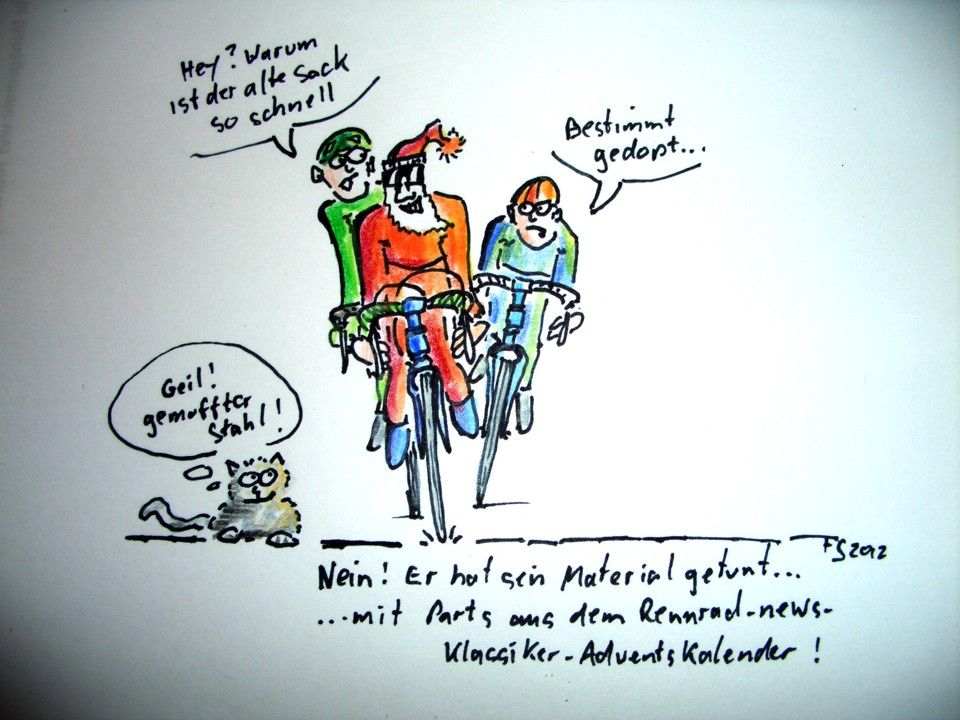 Hey? Warum
ist der alte Sack
so schnell
Bestimmt
gedopt...
Geil!
gemuffter
Stahl!
FS2012
Nein! Er hat sein Material getunt...
...mit Parts aus dem Rennrad-news-
Klassiker-Adventskalender!